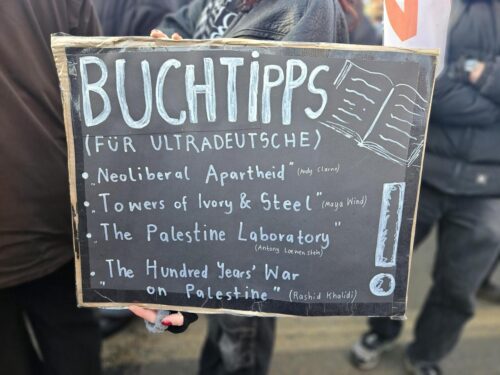 BUCHTIPPS
(FÜR ULTRADEUTSCHE)
• „Neoliberal Apartheid" (Andy Clarno)
• „Towers of Ivory & Steel" (Maya Wind)
• „The Palestine Laboratory"
(Antony Loewenstein)
• „The Hundred Years' War
on Palestine" (Rashid Khalidi)
!